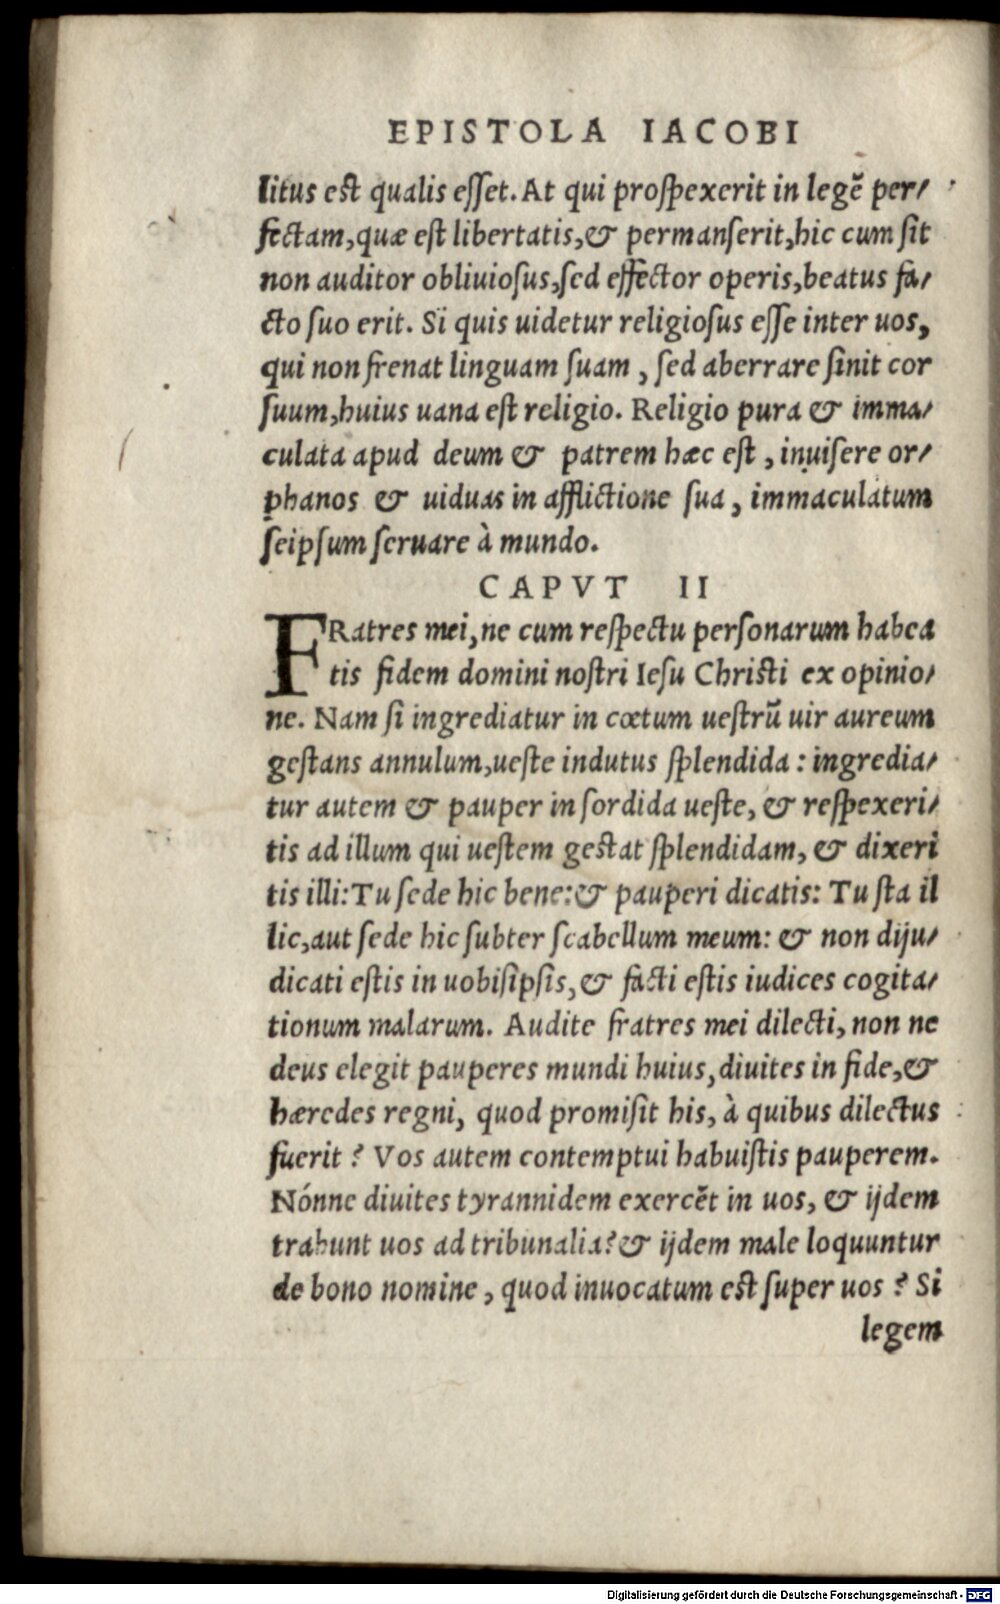 EPISTOLA IACOBI
litus est qualis esset. At qui prospexerit in legē per/
fectam, quæ est libertatis, & permanserit, hic cum sit
non auditor obliuiosus, sed effector operis, beatus fa/
cto suo erit. Si quis uidetur religiosus esse inter uos,
qui non frenat linguam suam, sed aberrare sinit cor
suum, huius uana est religio. Religio pura & imma/
culata apud deum & patrem hæc est, inuisere or/
phanos & uiduas in afflictione sua, immaculatum
seipsum seruare à mundo.
CAPVT II
FRatres mei, ne cum respectu personarum habea
tis fidem domini nostri Iesu Christi ex opinio/
ne. Nam si ingrediatur in cœtum uestrū uir aureum
gestans annulum, ueste indutus splendida: ingredia/
tur autem & pauper in sordida ueste, & respexeri/
tis ad illum qui uestem gestat splendidam, & dixeri
tis illi: Tu sede hic bene: & pauperi dicatis: Tu sta il
lic, aut sede hic subter scabellum meum: & non diju/
dicati estis in uobisipsis, & facti estis iudices cogita/
tionum malarum. Audite fratres mei dilecti, non ne
deus elegit pauperes mundi huius, diuites in fide, &
hæredes regni, quod promisit his, à quibus dilectus
fuerit? Vos autem contemptui habuistis pauperem.
Nónne diuites tyrannidem exercēt in uos, & ijdem
trahunt uos ad tribunalia? & ijdem male loquuntur
de bono nomine, quod inuocatum est super uos? Si
legem
Digitalisierung gefördert durch die Deutsche Forschungsgemeinschaft - DFG